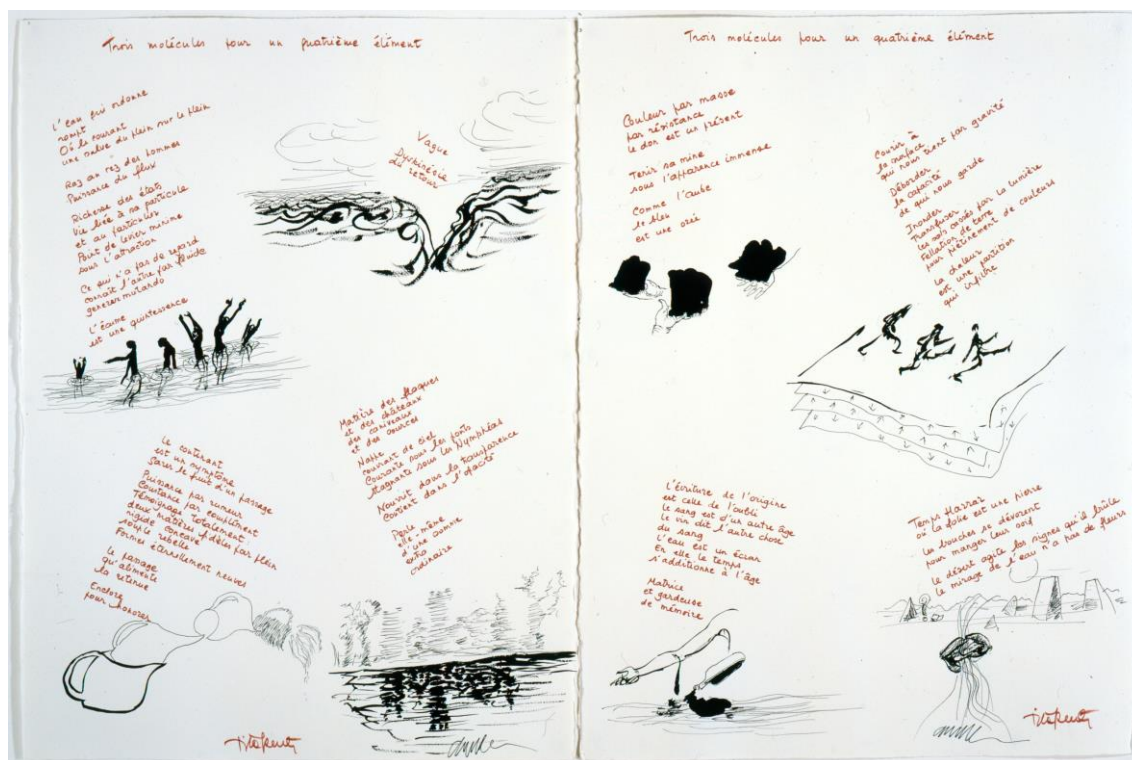 Trois molécules pour un quatrième élément
L'eau qui ordonne
rompt
Où le courant
une salve du plein sur le plein
Raz au rez des hommes
Puissance du flux
Richesse des états
Vie liée à sa particule
et au particulier
Point de levier minime
sous l'attraction
Ce qui n'a pas de regard
connaît l'autre par fluide
generer mutando
L'écume
est une quintessence
Vague
du retour
Le contenant
est un symptôme
Puissance par rumeur
Constance par complément
Témoignage totalement
deux matières fidèles par plein
rigide concave
souple rebelle
Formes éternellement neuves
Le passage
qu'alimente
la retenue
Enclore
pour honorer
Matière des flaques
et des châteaux
des caniveaux
et des sources
Nappe
courant de ciel
Courante sous les ponts
stagnante sous les Nymphéas
Nourrit dans la transparence
Contient dans l'opacité
Parle
elle-même
d'une somme
extra
ordinaire
Trois molécules pour un quatrième élément
Couleur par masse
par résistance
le don est un présent
Tenir sa mine
sous l'apparence immense
Comme l'aube
le bleu
est une
Courir à
la surface
qui nous tient par gravité
Déborder
la capacité
de qui nous garde
Inonder
Transfuser
les sols cassés par la lumière
Fellation de terre
pour piétinement de couleurs
La chaleur
est une partition
qui infiltre
L'écriture de l'origine
est celle de l'oubli
le sang est d'un autre âge
Le vin dit l'autre chose
du sang
L'eau est un écran
En elle le temps
s'additionne à l'âge
Matrice
et gardeuse
de mémoire
Temps
où la folie est une pierre
Les bouches se dévorent
pour manger leur soif
Le désert agite les signes qu'il brûle
le mirage de l'eau n'a pas de fleurs